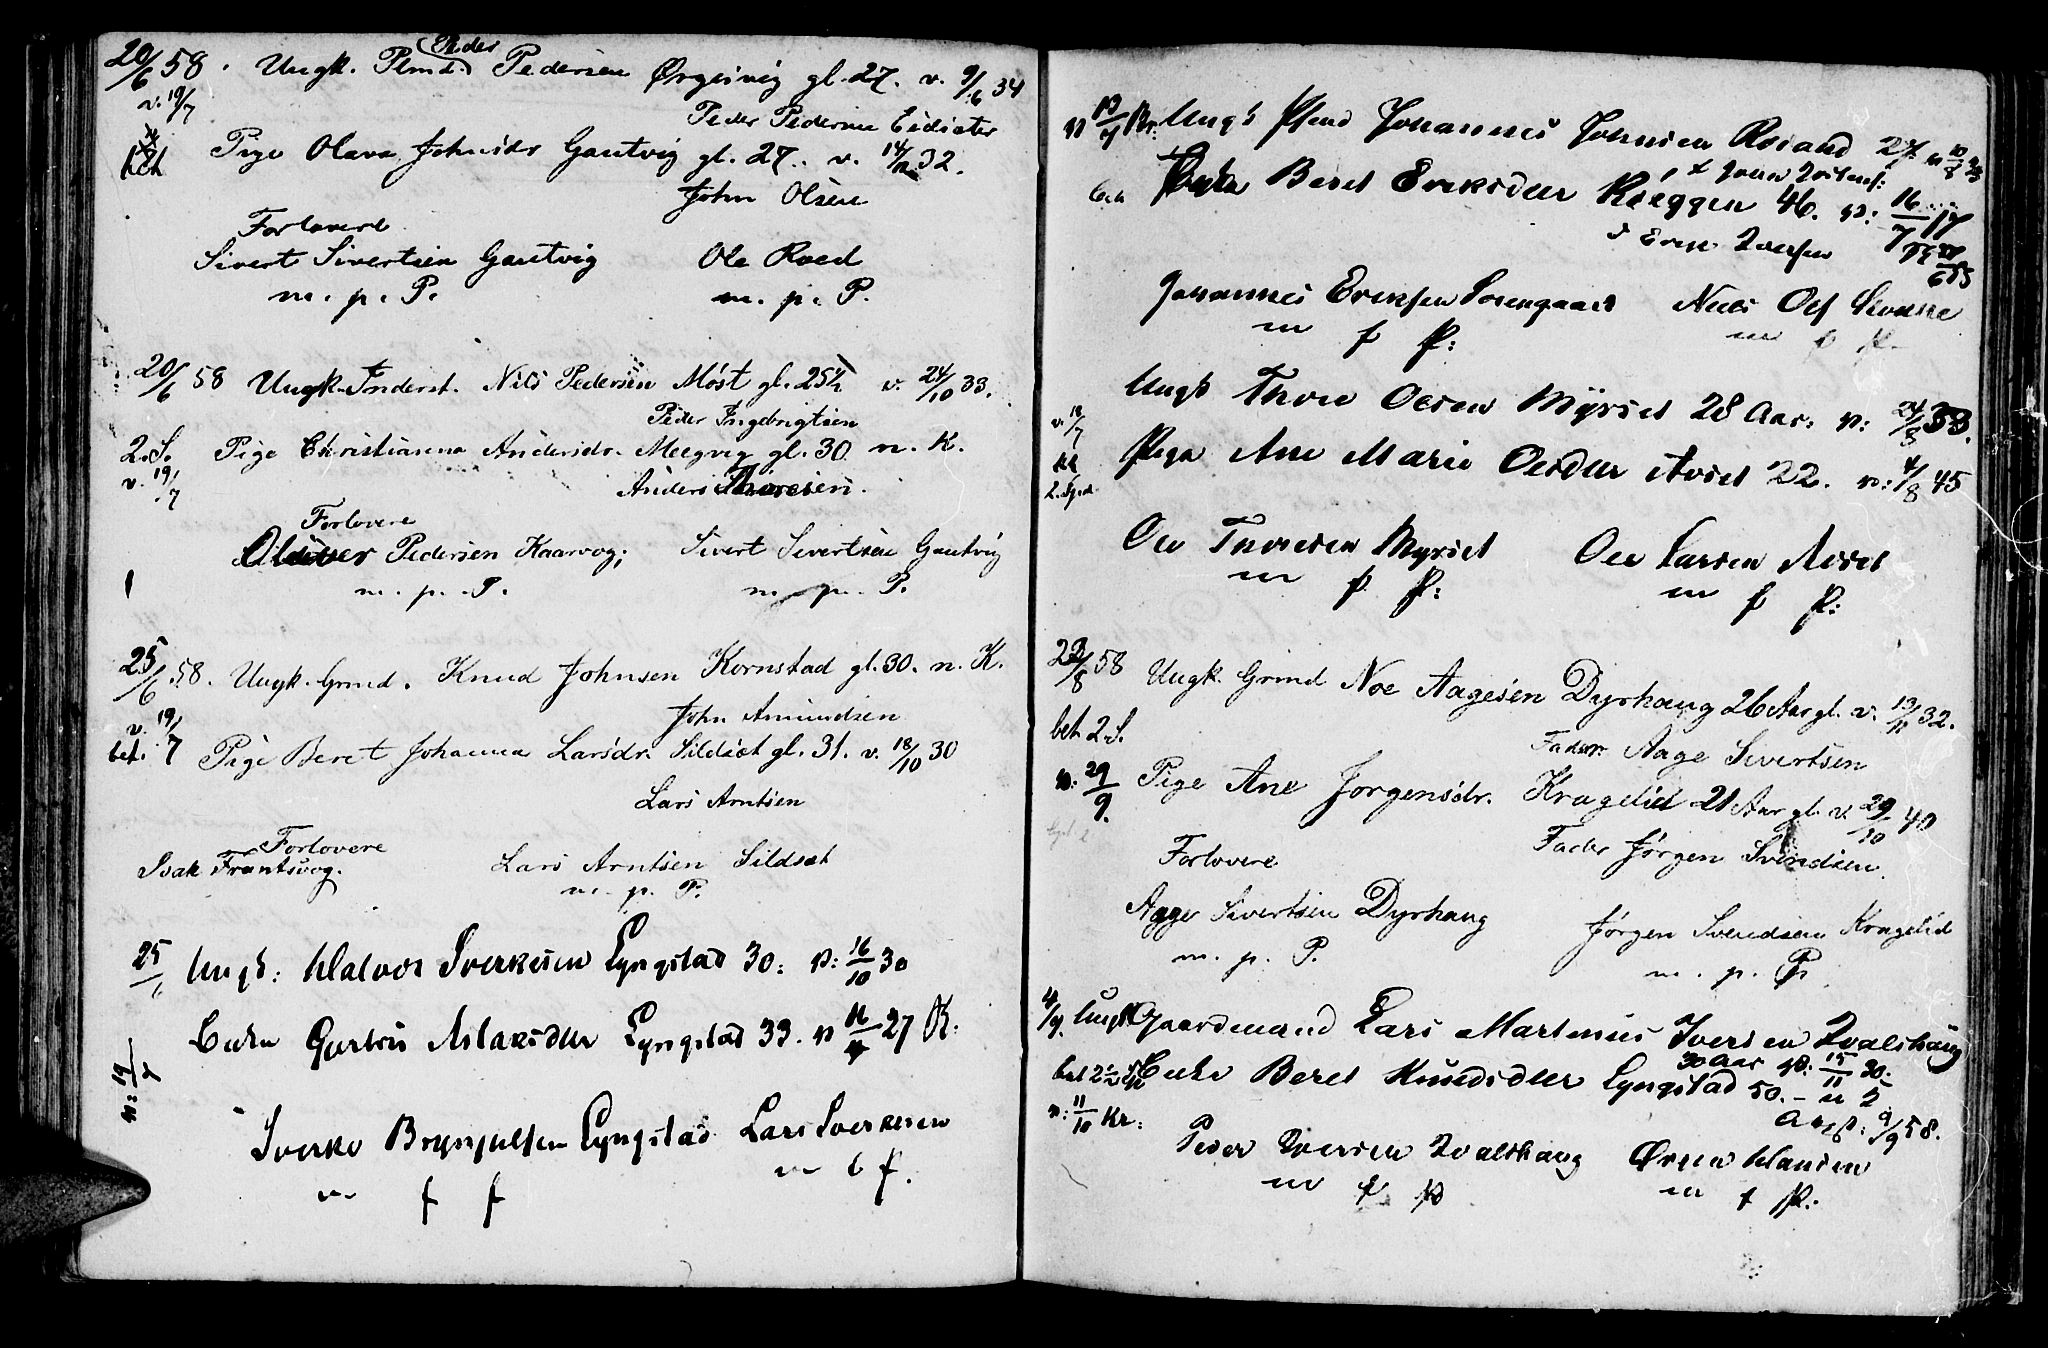 20/6 58. Ungk. Plmd. Peder Pedersen Ørgievig gl. 27. v. 9/6 34
v. 19/7
Peder Pedersen Eidsæter
bet Pige Olava Johnsdr Gautvig gl. 27. v. 14/12 32.
John Olsen
Forlovere
Sivert Sivertsen Gautvig Ole Roed
m. p. P. m. p. P.
20/6 58 Ungk. Inderst. Nils Pedersen Møst gl. 25 1/2 v. 24/10 33.
Peder Ingebrigtsen
2. S. Pige Christianna Andersdr. Meegvig gl. 30 n. K.
v. 19/7
Anders Thoresen.
Forlovere
Oliver Pedersen Kaarvog; Sivert Sivertsen Gautvig
m. p. P. m. p. P.
25/6 58. Ungk. Grmd. Knud Johnsen Kornstad gl. 30. n. K.
John Amundsen
v. 19/7
bet. Pige Beret Johanna Larsdr. Sildset gl. 31. v. 18/10 30
Lars Arntsen
Forlovere
Isak Frantsvog. Lars Arntsen Sildset
m. p. P.
25/6 Ungk: Halvor Sverkesen Lyngstad 30: v: 16/10 30
Enke Gurtru Aslaksdter Lyngstad 33. v 16/4 27 K:
v: 19/7
Sverke Brynjulfsen Lyngstad Lars Sverkesen
m p p m p p.
v 13/7 Kr: Ungk Plmd Johannes Johnsen Røsand 27. v 10/2
John Jostens:
Enke Beret Eriksdter Røeggen 46. v: 16/7 17
Erik Iversen
Johannes Eriksen Sorengaard Niels Ols
m p P: m p P.
Ungk Thore Olesen Myrset 28 Aar: v: 24/8 33.
v. 19/7
Pige Ane Marie Olesdter Aaset 22. v: 4/8 45
2. Spd.
Ole Thoresen Myrset Ole Larsen Aaset
m p P: m p P:
23/8 58 Ungk. Grmd Noe Aagesen Dyrhaug 26 Aar gl. v. 13/11 32.
bet 2. S.
Fader Aage Sivertsen
v: 29/9. Pige Ane Jørgensdr. Kragelid 21 Aar gl. v. 29/10 40
Fader Jørgen Svendsen.
Forlovere
Agge Sivertsen Dyrhaug Jørgen Svendsen Kragelid
m. p. P. m. p. P
4/9. Ungk Gaardmand Lars Martinus Iversen Qvalshaug
30 Aar v: 15/11 30.
bet 2 1/2 Sp Enke Beret Knudsdter Lyngstad 50.
v: 11/10 Kr: 9/9 58.
Peder Iversen Qvalshaug Ørjen Hansen
m p p m p P: